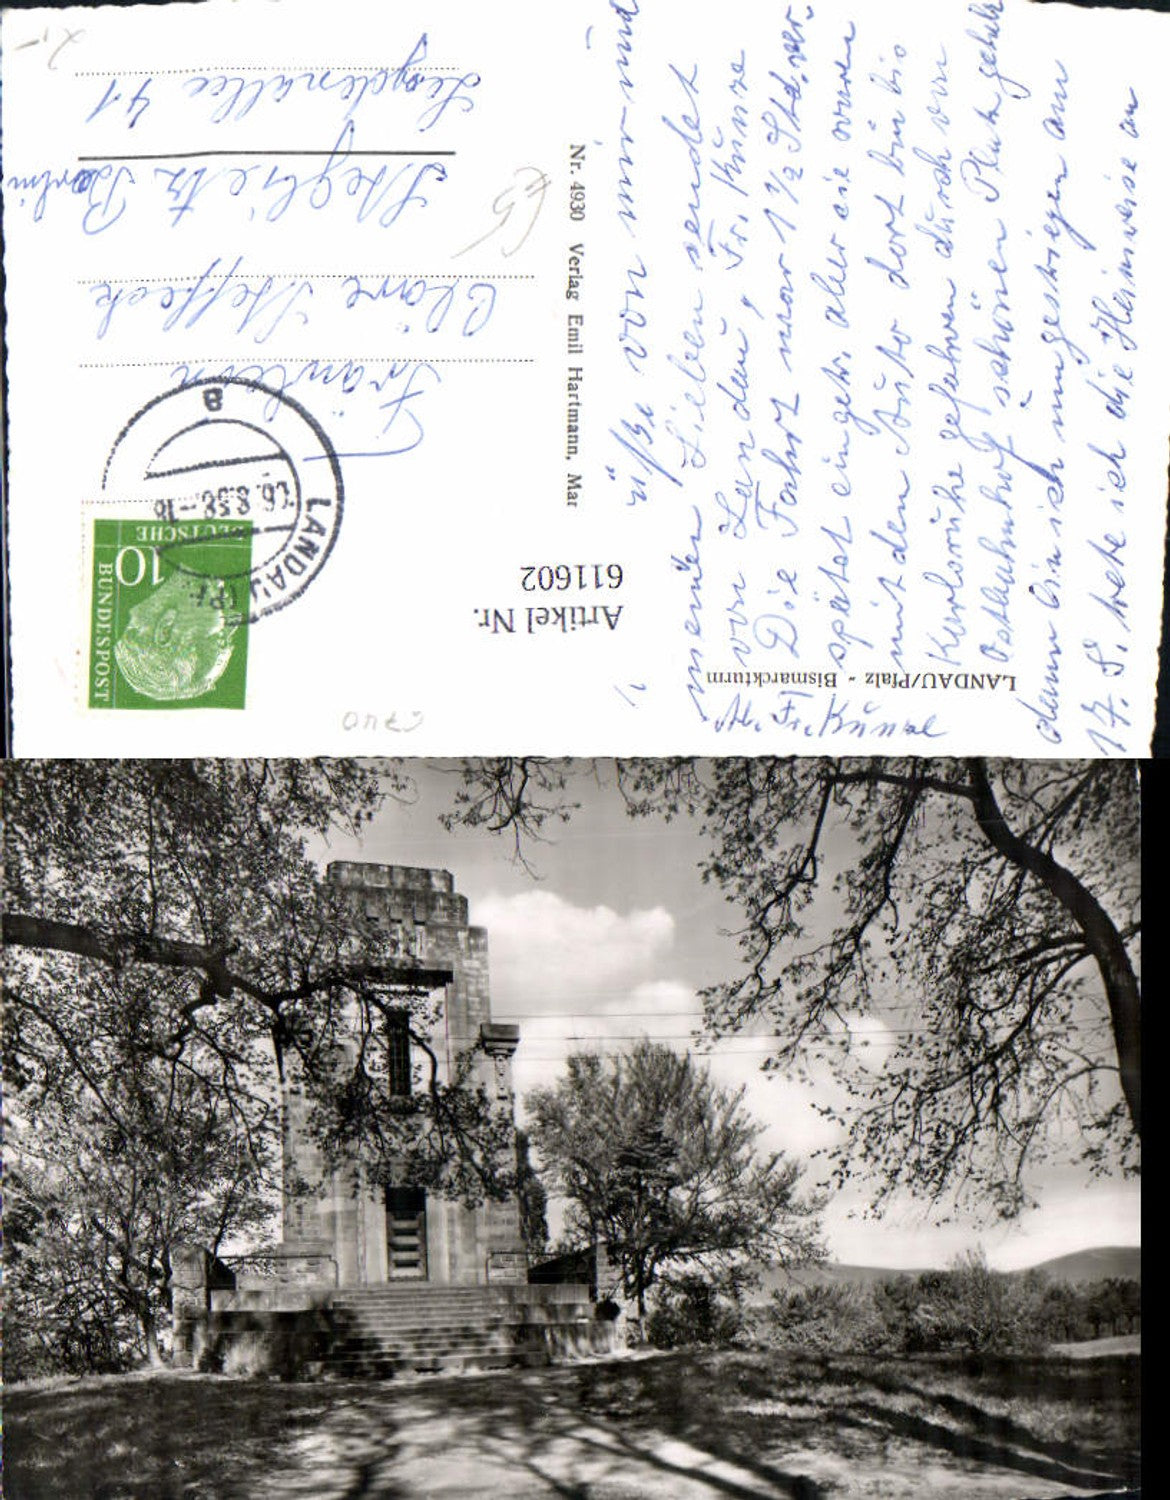 LANDAU/Pfalz - Bismarckturm
Artikel Nr.
611602
Nr. 4930 Verlag Emil Hartmann, Mar
DEUTSCHE
BUNDESPOST
10
LANDAU (Pf
8.58.-18
B
Fräulein
Cläre Steffeck
Steglietz Berlin
41
von mir und
meinen Lieben sendet
von Landau, Fr. Kunze
Die Fahrt war 1 1/2 Std. ver-
spätet eingetr. aber sie waren
mit dem Auto dort bin bis
Karlsruhe gefahren durch von
Ostbahnhof schönen Platz gehabt
denn bin ich umgestiegen am
17. 8. trete ich die Heimreise an
Fr. Kunze